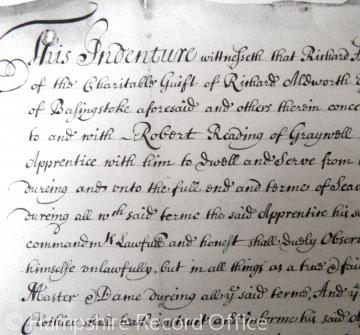 This Indenture wittnesseth that Richard
of the Charitable Guift of Richard Aldworth
of Basingstoke aforesaid and others therein conce
to and with Robert Reading of Graywell
Apprentice with him to dwell and Serve from
dureing and vnto the full end and terme of Seav
dureing all wch said terme the said Apprentice his s
commandmts Lawfull and honest shall duely Obser
himselfe onlawfully, but in all things as a true & fai
Master & Dame dureing all ye said terme, And ye
Clothes
his said
Hampshire Record Office